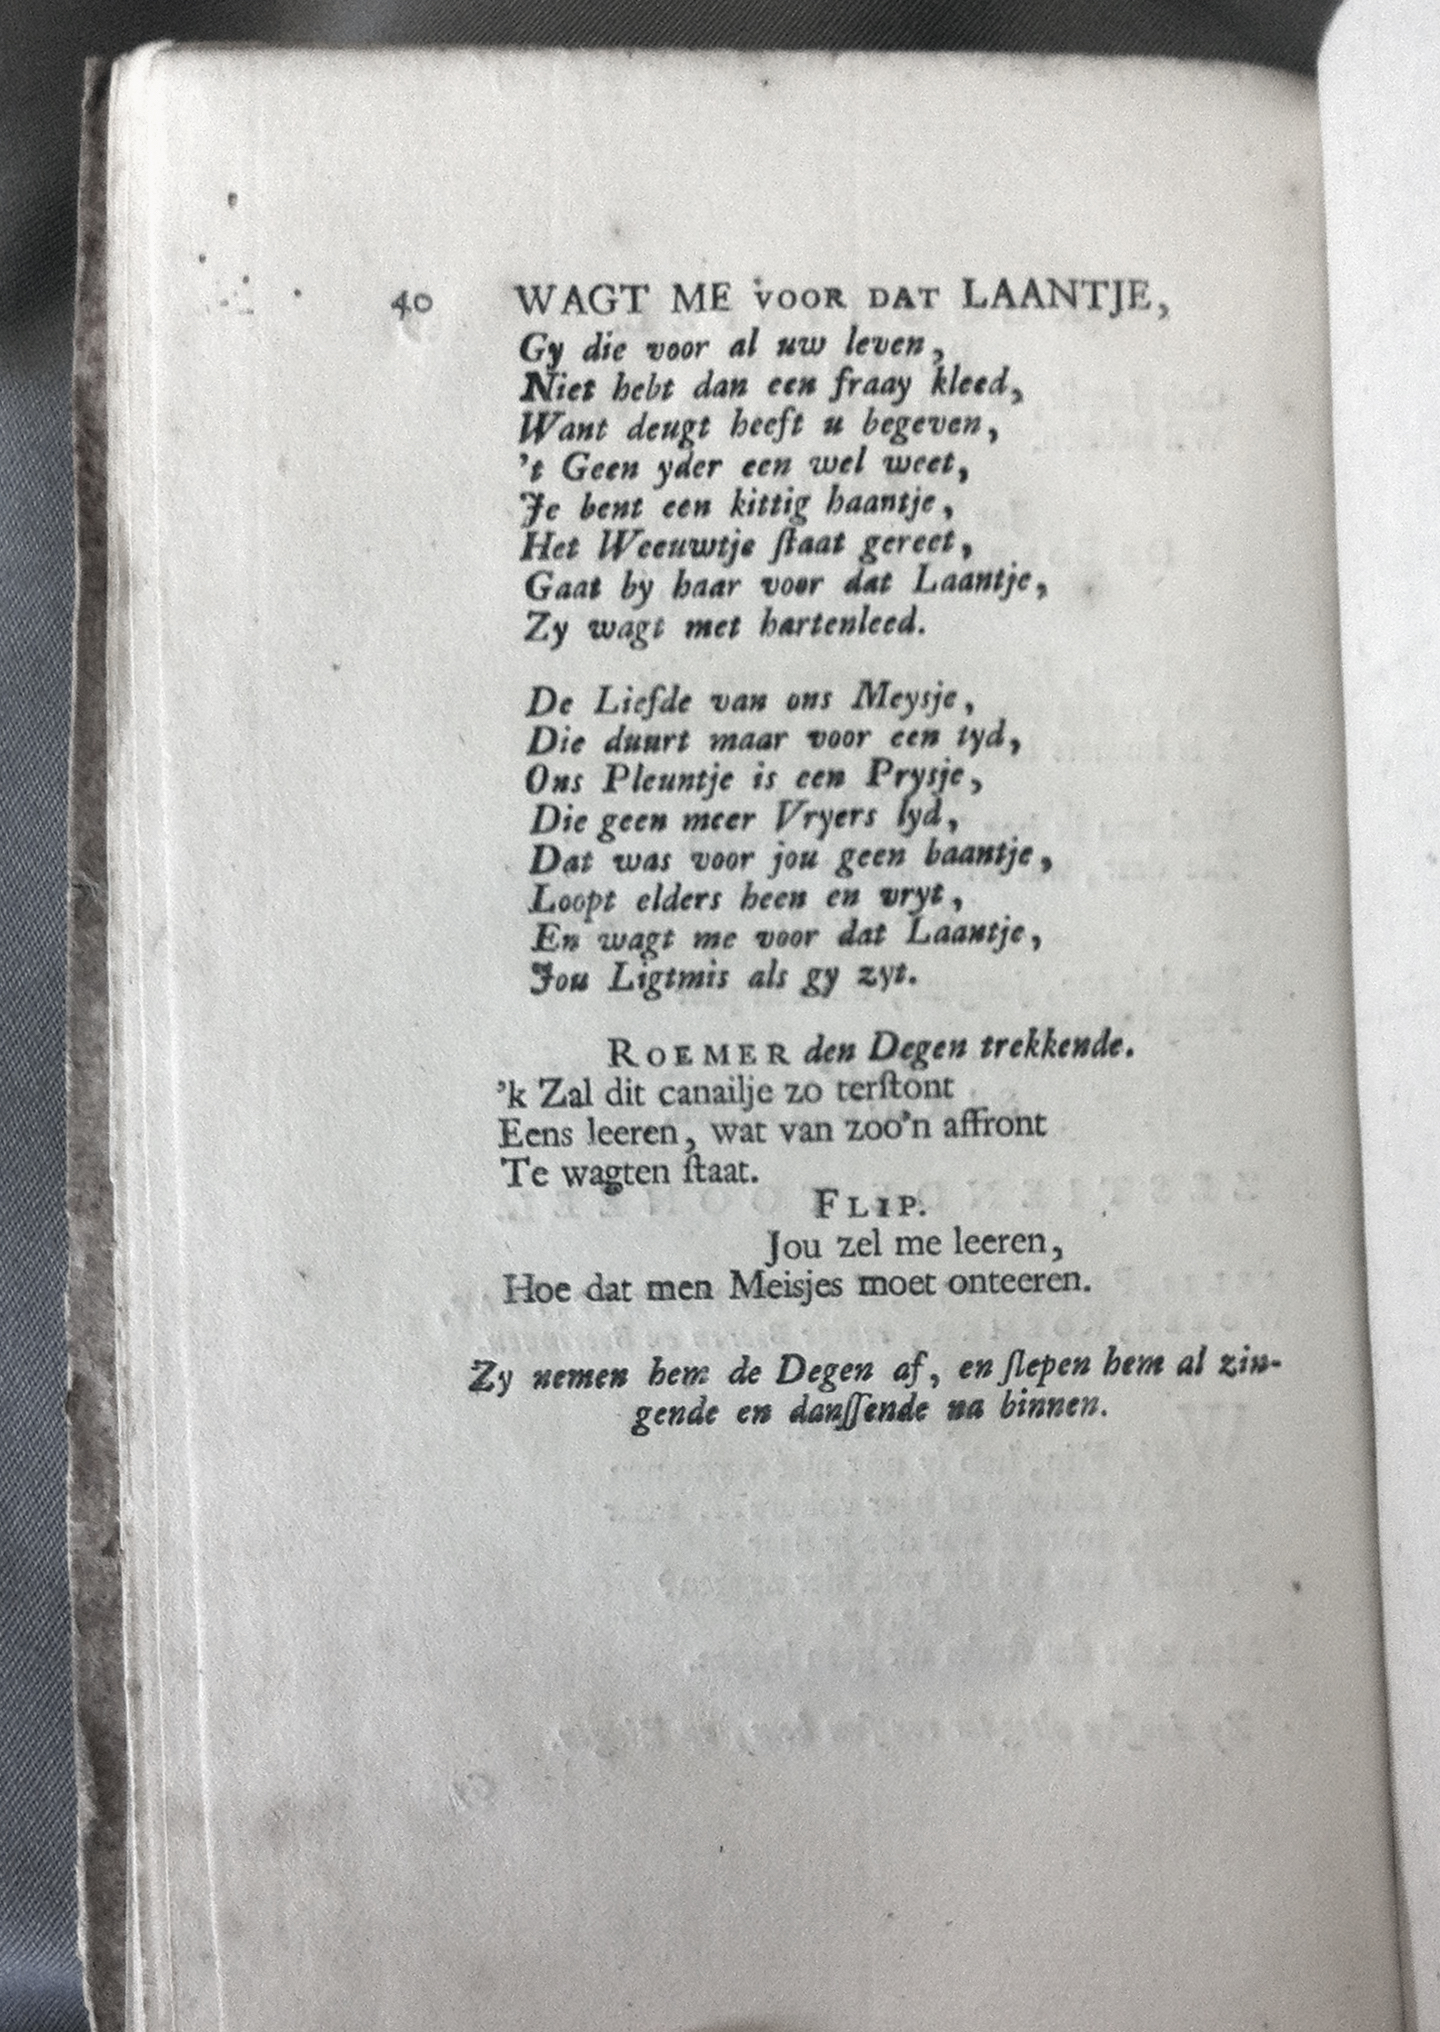 40 WAGT ME VOOR DAT LAANTJE,
Gy die voor al uw leven,
Niet hebt dan een fraay kleed,
Want deugt heeft u begeven,
't Geen yder een wel weet,
Je bent een kittig haantje,
Het Weeuwtje ſtaat gereet,
Gaat by haar voor dat Laantje,
Zy wagt met hartenleed.
De Liefde van ons Meysje,
Die duurt maar voor een tyd,
Ons Pleuntje is een Prysje,
Die geen meer Vryers lyd,
Dat was voor jou geen baantje,
Loopt elders heen en vryt,
En wagt me voor dat Laantje,
Jou Ligtmis als gy zyt.
ROEMER den Degen trekkende.
'k Zal dit canailje zo terſtont
Eens leeren, wat van zoo'n affront
Te wagten ſtaat.
FLIP.
Jou zel me leeren,
Hoe dat men Meisjes moet onteeren.
Zy nemen hem de Degen af, en ſlepen hem al zin-
gende en danſſende na binnen.